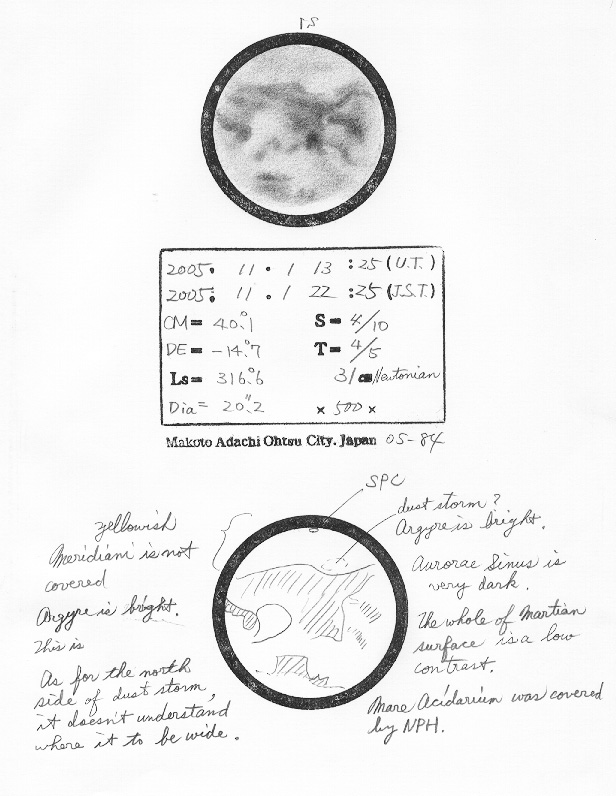 2005. 11 . 1 13 :25 (U.T.)
2005: 11 . 1 22 :25 (J.S.T.)
CM= 40.°1 S= 4/10
DE= -14.°7 T= 4/5
Ls= 316.°6 31 Newtonian
Dia= 20."2 × 500 ×
Makoto Adachi Ohtsu City. Japan 05-84
SPC
dust storm?
Argyre is bright.
yellowish
Meridiani is not
covered
Argyre is bright.
This is
As for the north
side of dust storm,
it doesn't understand
where it to be wide.
Aurorae Sinus is
very dark.
The whole of Martian
surface is a low
contrast.
Mare Acidarium was covered
by NPH.